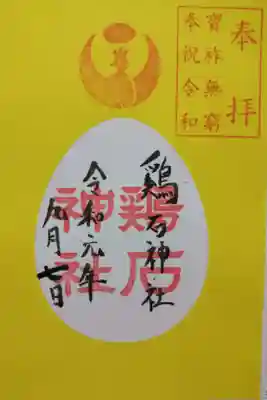 奉拝
寶祚無窮
奉祝令和
鶏石神社
鶏石神社
令和元年
九月七日